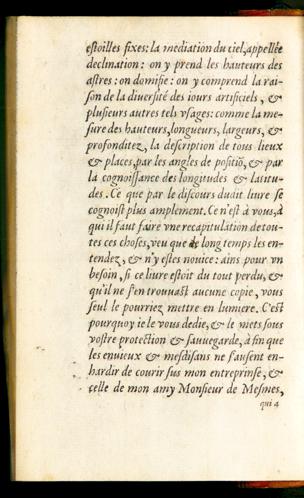 eſtoilles fixes: la mediation du ciel, appellée
declination: on y prend les hauteurs des
aſtres: on domifie: on y comprend la rai-
ſon de la diuerſité des iours artificiels, &
pluſieurs autres tels vſages: comme la me-
ſure des hauteurs, longueurs, largeurs, &
profonditez, la deſcription de tous lieux
& places, par les angles de poſitiõ, & par
la cognoiſſance des longitudes & latitu-
des. Ce que par le diſcours dudit liure ſe
cognoiſt plus amplement. Ce n'eſt à vous, à
qui il faut faire vne recapitulation de tou-
tes ces choſes, veu que de long temps les en-
tendez, & n'y eſtes nouice: ains pour vn
beſoin, ſi ce liure eſtoit du tout perdu, &
qu'il ne ſ'en trouuaſt aucune copie, vous
ſeul le pourriez mettre en lumiere. C'eſt
pourquoy ie le vous dedie, & le mets ſous
voſtre protection & ſauuegarde, à fin que
les enuieux & meſdiſans ne ſ'auſent en-
hardir de courir ſus mon entreprinſe, &
celle de mon amy Monſieur de Meſmes,
qui a